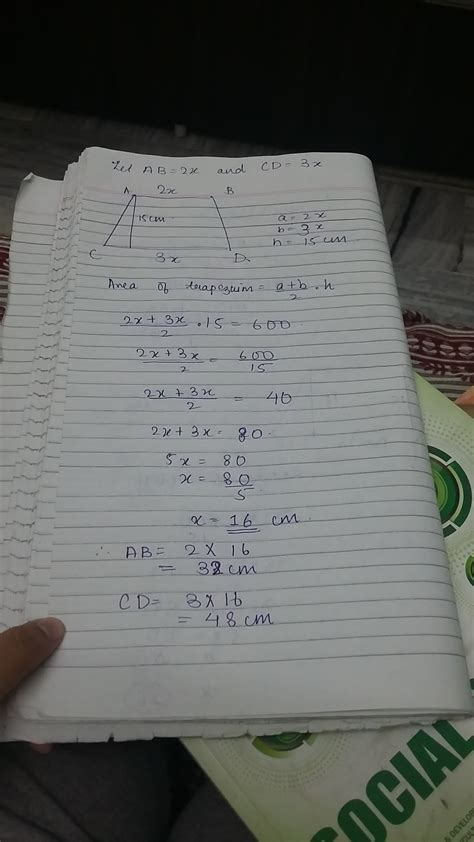 Let AB = 2x and CD = 3x
A 2x B
15cm
C 3x D
a = 2x
b = 3x
h = 15 cm
Area of trapezium = a+b/2 · h
2x + 3x/2 · 15 = 600
2x + 3x/2 = 600/15
2x + 3x/2 = 40
2x + 3x = 80
5x = 80
x = 80/5
x = 16 cm
∴ AB = 2 × 16
= 32 cm
CD = 3 × 16
= 48 cm
SOCIAL